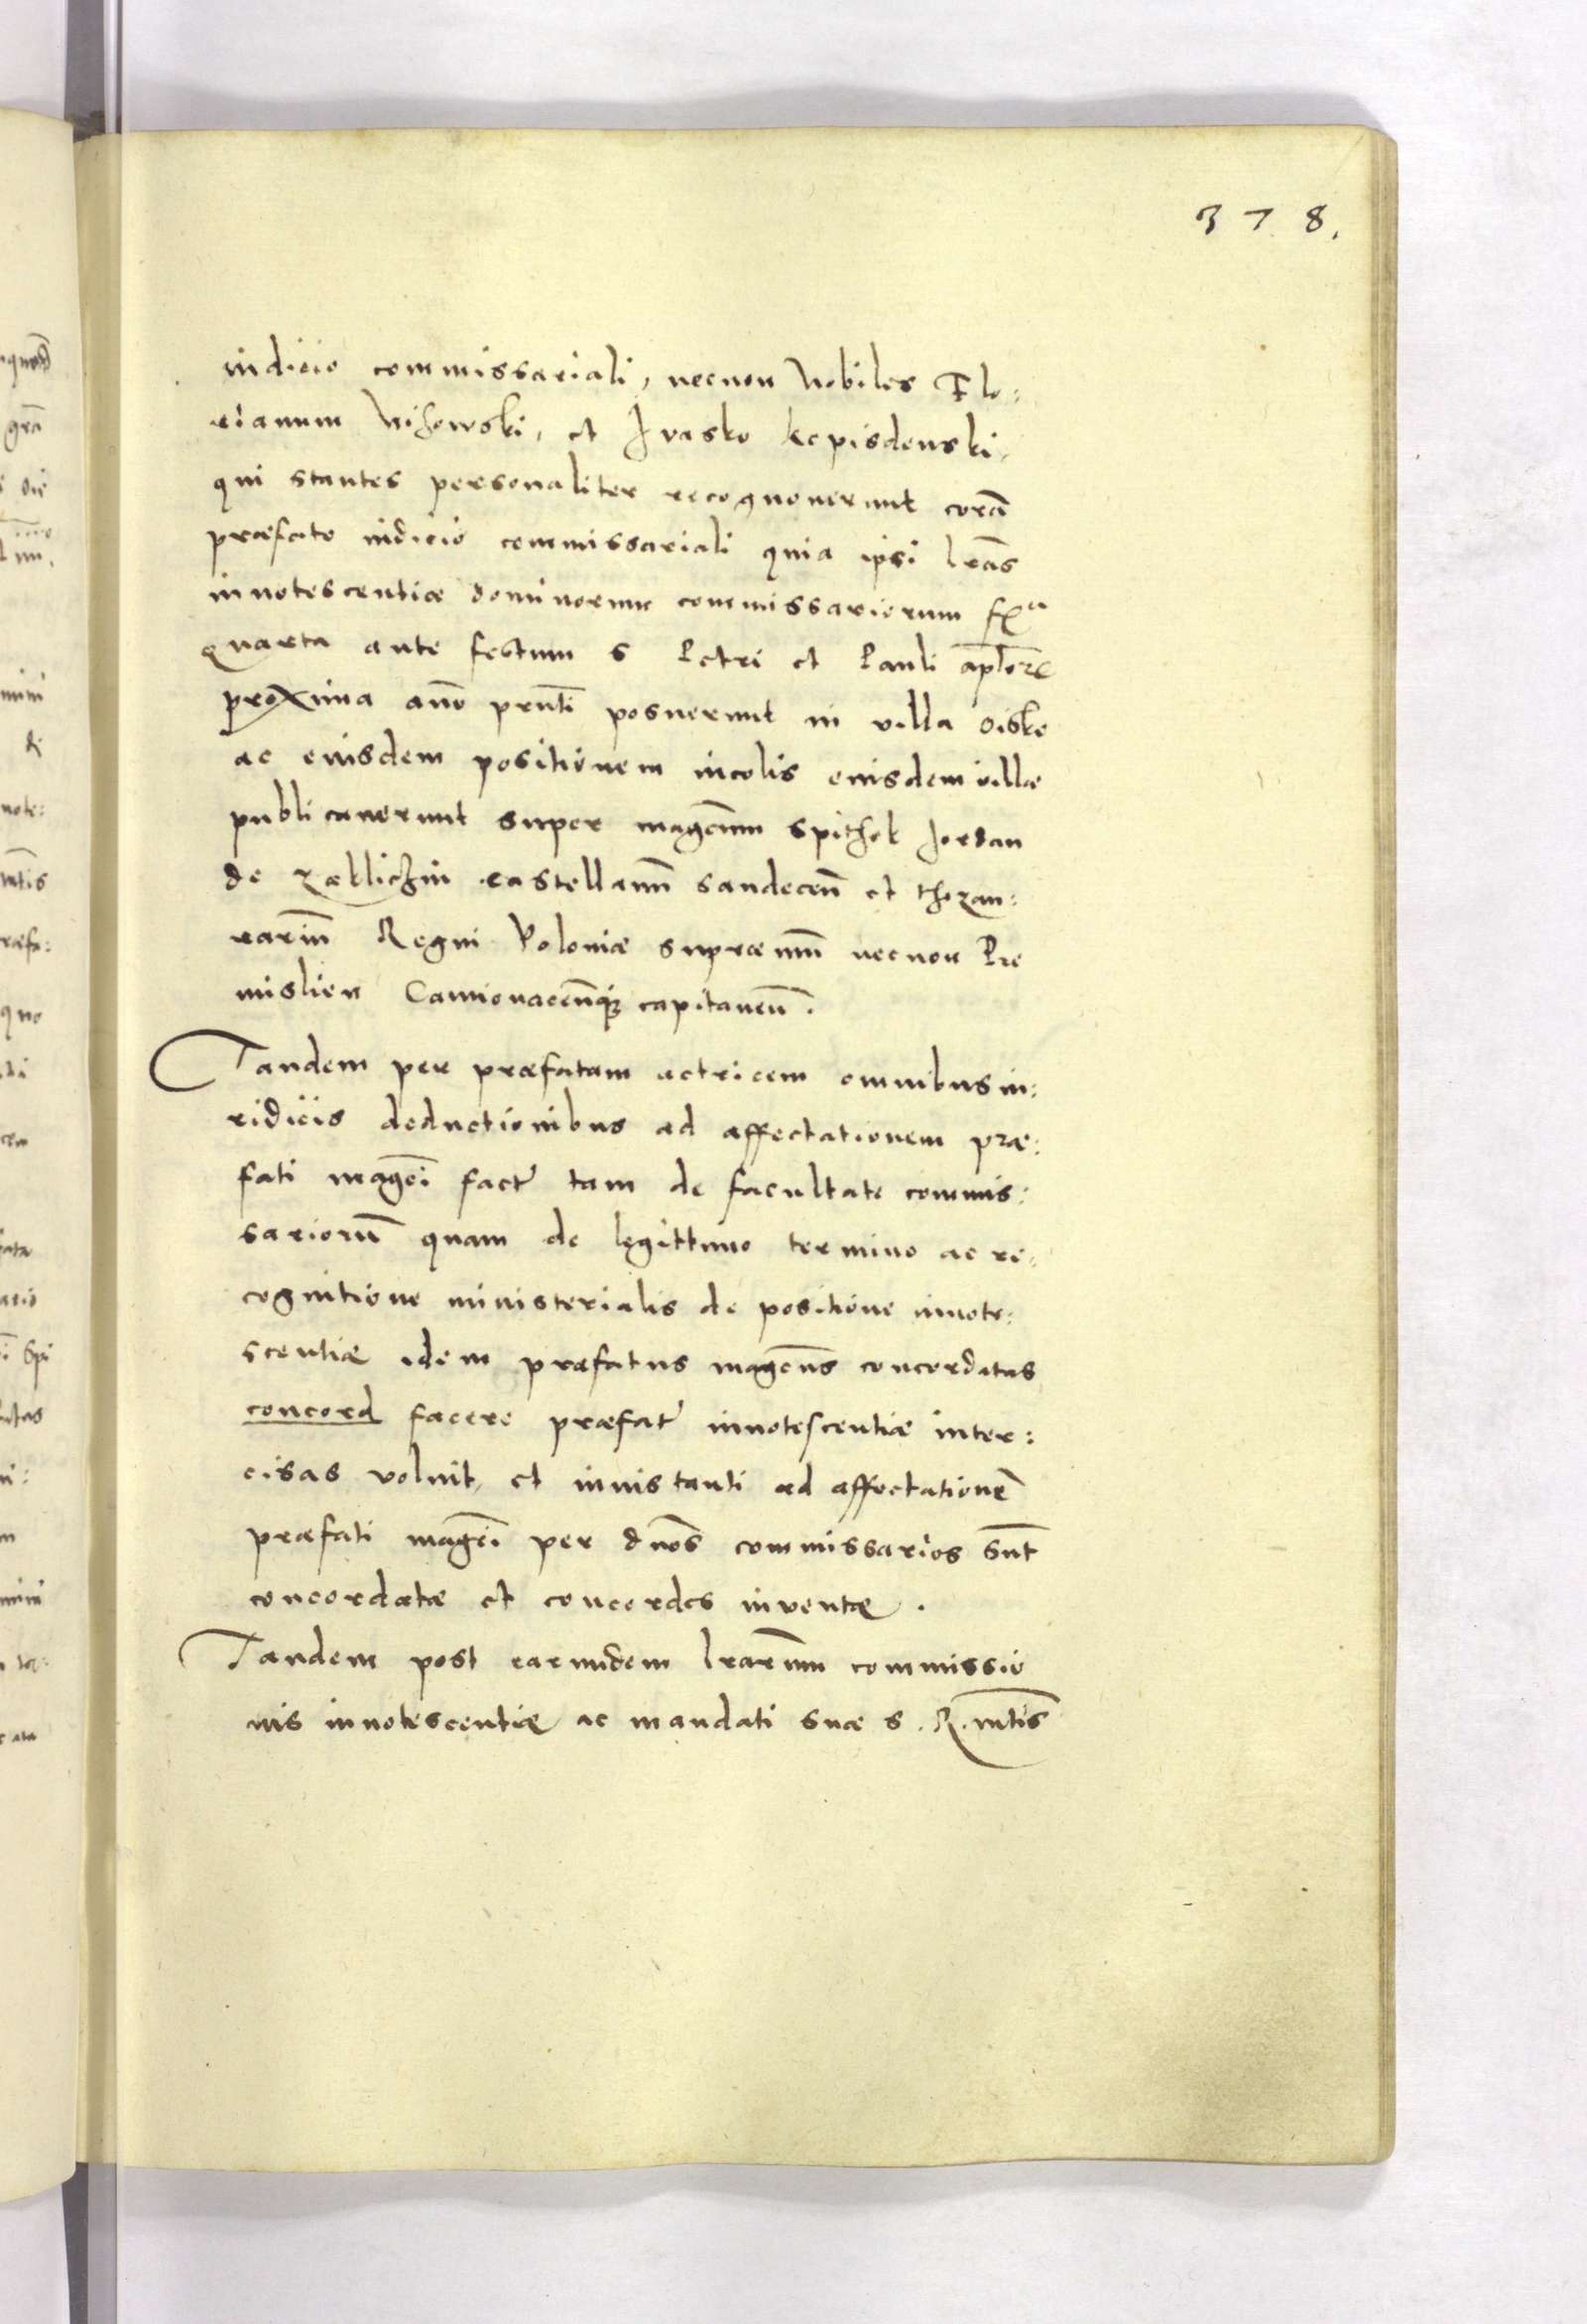 378.
iudicio commissariali, necnon Nobiles Flo:
rianum Nisowski, et Ivasko Kopisdenski,
qui stantes personaliter recognoverunt corā
præfato iudicio commissariali quia ipsi lrās
innotescentiæ dominorum commissariorum
quarta ante festum S Petri et Pauli
proxima anō prnti posuerunt in villa Oiske
ac eiusdem positionem incolis eiusdem villæ
publicaverunt super magcum Spithek Jordan
de Zakliczin castellanū Sandeceñ et thezau:
rariū Regni Poloniæ supræmū necnon Pre
mislien Camionacenque capitaneū.
Tandem per præfatam actricem omnibus iu:
ridicis deductionibus ad affectationem præ:
fati magci fact tam de facultate commis:
sariorū quam de legittimo termino ac re:
cognitione ministerialis de positione innote:
scentiæ idem præfatus magcus concordatas
concord facere præfat innotescentiæ inter:
cisas voluit, et in instanti ad affectationē
præfati magci per dnōs commissarios sunt
concordatæ et concordes inventæ.
Tandem post earundem lrarum commissio
nis innotescentiæ ac mandati suæ S. R. mtis